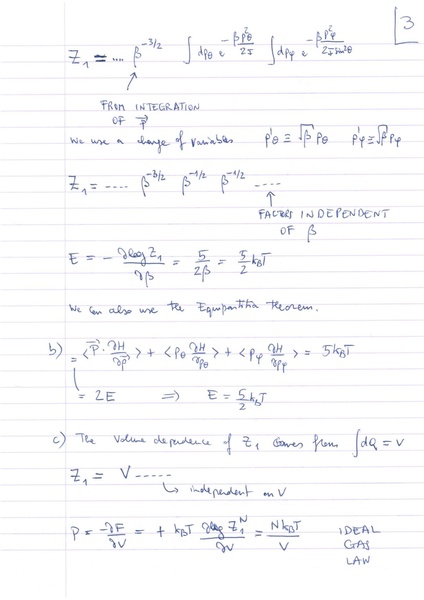 3
Z₁ = .... β^{-3/2} ∫dp_θ e^{-βp_θ²/2I} ∫dp_φ e^{-βp_φ²/2I sin²θ}
FROM INTEGRATION
OF p⃗
We use a change of variables p'_θ ≡ √β p_θ p'_φ ≡ √β p_φ
Z₁ = .... β^{-3/2} β^{-1/2} β^{-1/2} ....
FACTORS INDEPENDENT
OF β
E = - ∂log Z₁/∂β = 5/2β = 5/2 k_BT
We can also use the Equipartition theorem.
b) = <p⃗ · ∂H/∂p⃗> + <p_θ ∂H/∂p_θ> + <p_φ ∂H/∂p_φ> = 5k_BT
= 2E ⇒ E = 5/2 k_BT
c) The volume dependence of Z₁ comes from ∫dq = V
Z₁ = V -----
independent on V
P = -∂F/∂V = + k_BT ∂log Z₁^N/∂V = Nk_BT/V IDEAL
GAS
LAW